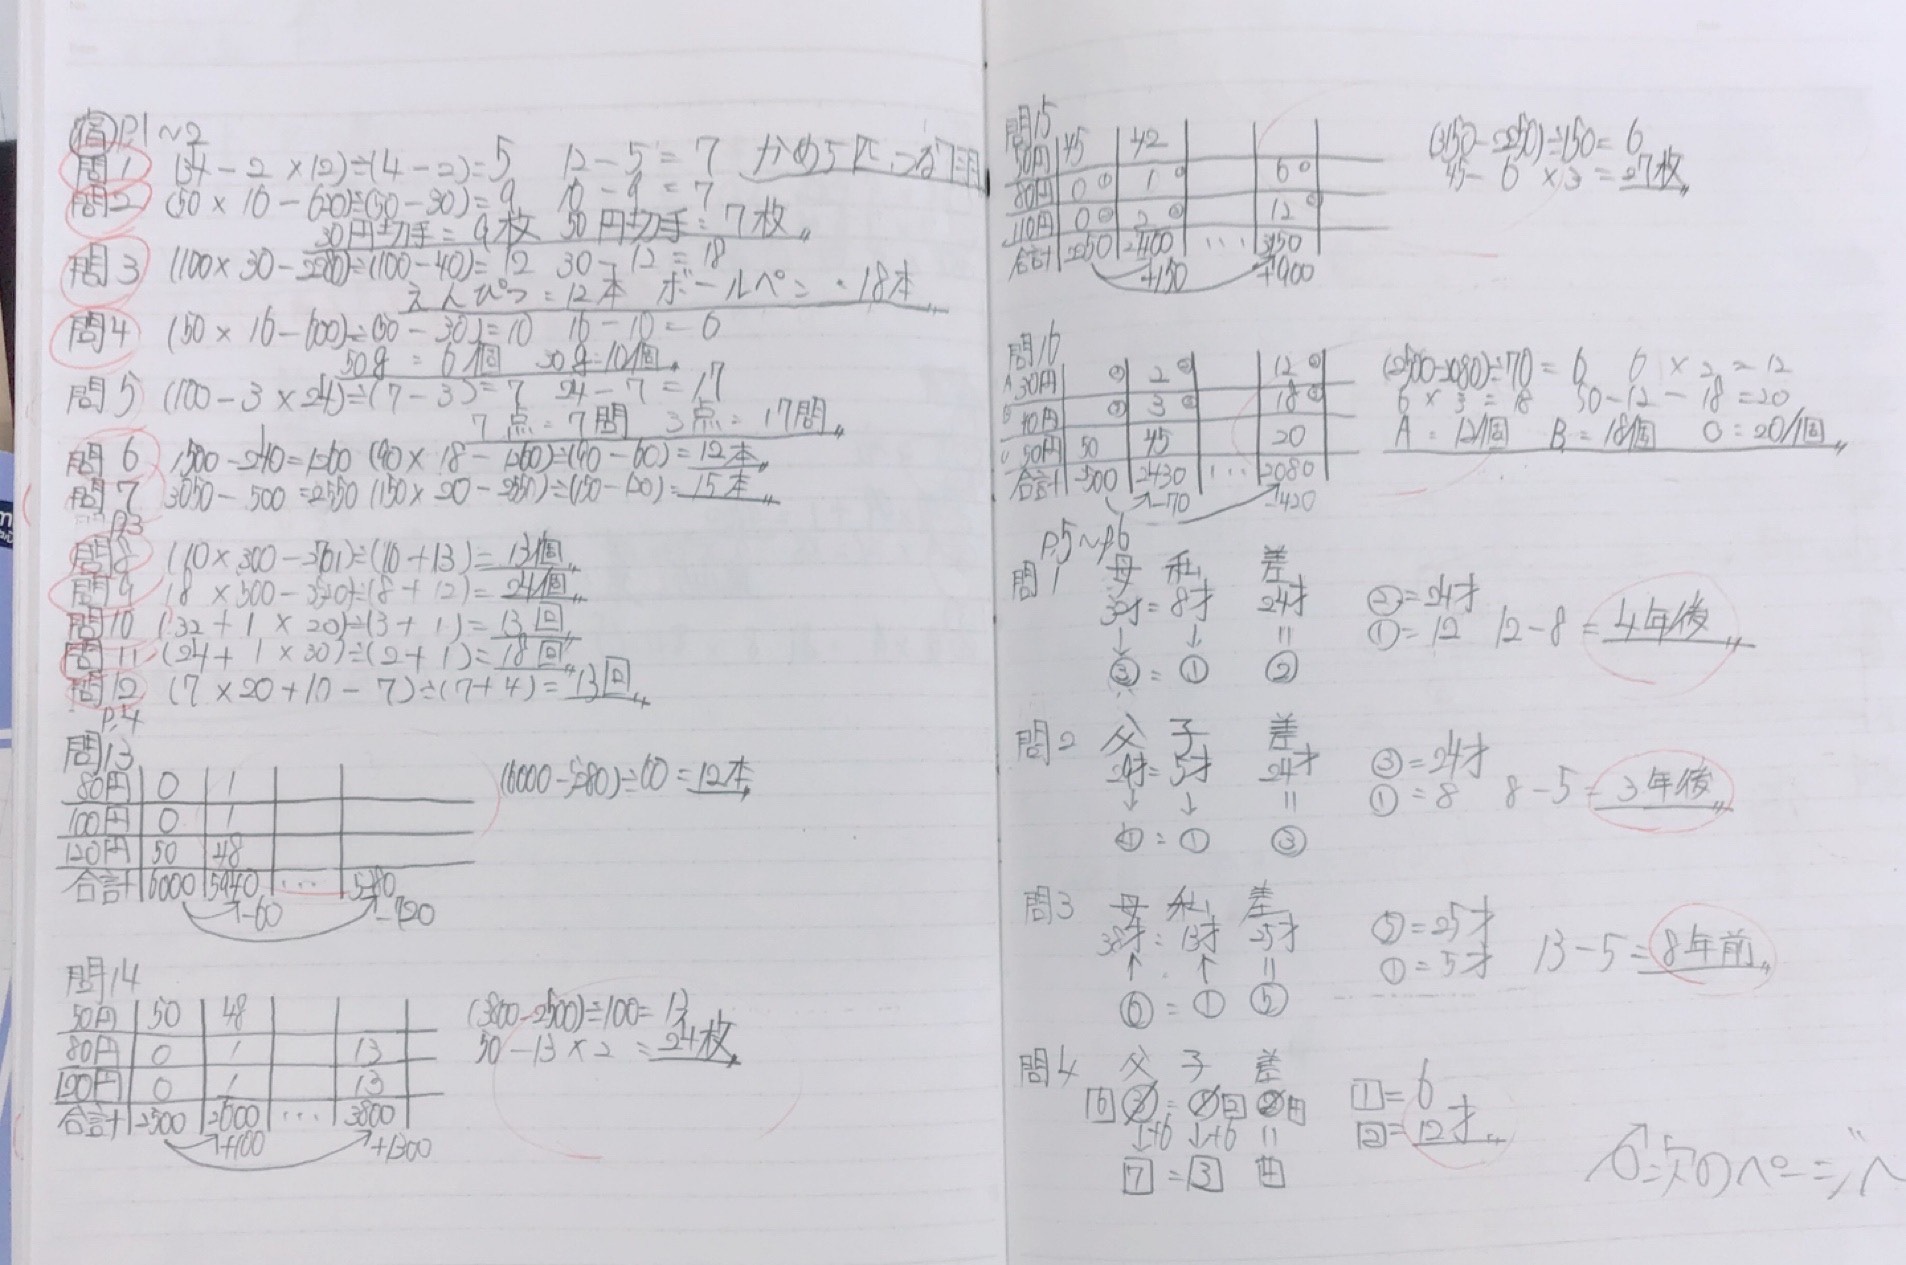 宿 P.1~2
問1 (34-2×12)÷(4-2)=5 12-5=7 かめ5匹 つる7羽
問2 (50×16-620)÷(50-30)=9 16-9=7
30円切手=9枚 50円切手=7枚
問3 (100×30-2280)÷(100-40)=12 30-12=18
えんぴつ=12本 ボールペン=18本
問4 (50×16-600)÷(50-30)=10 16-10=6
50g=6個 30g=10個
問5 (100-3×24)÷(7-3)=7 24-7=17
7点=7問 3点=17問
問6 1500-240=1260 (90×18-1260)÷(90-60)=12本
問7 3050-500=2550 (150×20-2550)÷(150-120)=15本
P.3
問8 (10×300-2701)÷(10+13)=13個
問9 (8×500-3520)÷(8+12)=24個
問10 (32+1×20)÷(3+1)=13回
問11 (24+1×30)÷(2+1)=18回
問12 (7×20+10-7)÷(7+4)=13回
P.4
問13
80円 0 1
100円 0 1
120円 50 48
合計 6000 5940 … 5280
-60 -720
(6000-5280)÷60=12本
問14
50円 50 48
80円 0 1 13
120円 0 1 13
合計 2500 2600 … 3800
+100 +1300
(3800-2500)÷100=13
50-13×2=24枚
問15
50円 45 42
80円 0 1 6
110円 0 2 12
合計 2250 2400 … 3150
+150 +900
(3150-2250)÷150=6
45-6×3=27枚
問16
A 30円 2 12
B 40円 3 18
C 50円 50 45 20
合計 2500 2430 … 2080
-70 -420
(2500-2080)÷70=6 6×2=12
6×3=18 50-12-18=20
A=12個 B=18個 C=20個
P.5~P.6
問1 母 私 差
32才=8才 24才
↓ ↓ =
③=① ②
②=24才
①=12 12-8=4年後
問2 父 子 差
29才=5才 24才
↓ ↓ =
④=① ③
③=24才
①=8 8-5=3年後
問3 母 私 差
38才=13才 25才
↑ ↑ =
⑥=① ⑤
⑤=25才
①=5才 13-5=8年前
問4 父 子 差
6 ③=①2 ②4
↓+6 ↓+6 =
7=3 4
1=6
2=12才
次のページへ